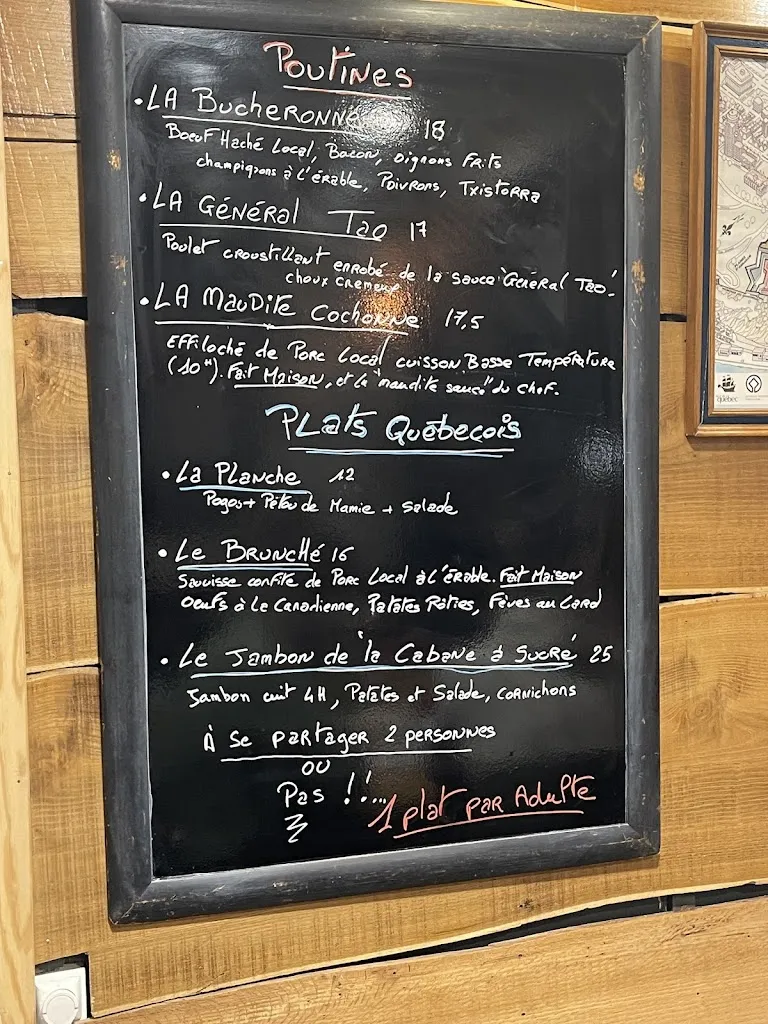 Poutines
• LA BucheRonne 18
Boeuf Haché Local, Bacon, Oignons Frits
champignons à l'érable, Poivrons, Txistorra
• LA GÉNÉRAL TAO 17
Poulet croustillant enrobé de la sauce "Général Tao".
choux cremeux
• LA MAUDITE COCHONNE 17,5
Effiloché de Porc Local cuisson Basse Température
(10H). Fait Maison, et la "maudite sauce" du Chef.
PLats Québecois
• La Planche 12
Pogos + Pitou de Mamie + Salade
• Le BRUNCHÉ 16
Saucisse confite de Porc Local à l'érable. Fait Maison
Oeufs à la Canadienne, Patates Rôties, Fèves au Lard
• Le Jambon de la Cabane à Sucre 25
Jambon cuit 4H, Patates et Salade, Cornichons
À Se partager 2 personnes
ou
Pas !!...
1 plat par Adulte
Québec